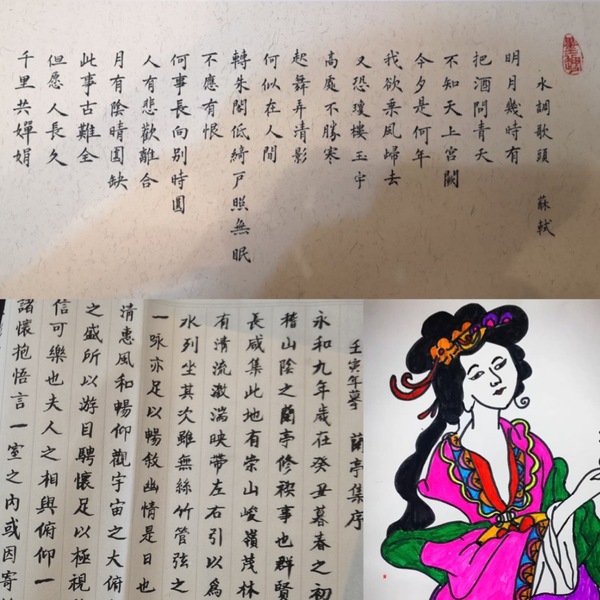 水調歌頭 蘇軾
明月幾時有
把酒問青天
不知天上宮闕
今夕是何年
我欲乘風歸去
又恐瓊樓玉宇
高處不勝寒
起舞弄清影
何似在人間
轉朱閣低綺戶照無眠
不應有恨
何事長向别時圓
人有悲歡離合
月有陰晴圓缺
此事古難全
但愿人長久
千里共嬋娟
壬寅年摹 蘭亭集序
永和九年歲在癸丑暮春之初
稽山陰之蘭亭修禊事也群賢
長咸集此地有崇山峻嶺茂林
有清流激湍映帶左右引以為
水列坐其次雖無絲竹管弦之
一詠亦足以暢敘幽情是日也
清惠風和暢仰觀宇宙之大俯
之盛所以游目騁懷足以極視
信可樂也夫人之相與俯仰一
諸懷抱悟言一室之內或因寄